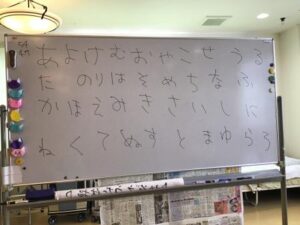 あよけむおやこせうる
たのりはそめちなふ
かほえみきさいしに
ねくてぬすとまゆらろ